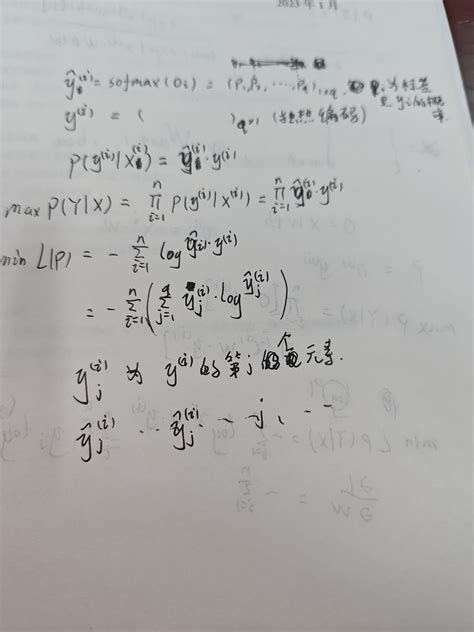 2023 年 1 月
ŷ^(i) = softmax(O_i) = (P_1 P_2, ..., P_q)_{1×q}, P_i 为标签是 y_i 的概率
y^(i) = (          )_{q×1} (独热编码)
P(y^(i)|X^(i)) = ŷ^(i)·y^(i)
max P(Y|X) = ∏_{i=1}^{n} P(y^(i)|x^(i)) = ∏_{i=1}^{n} ŷ^(i)·y^(i)
min L(P) = - ∑_{i=1}^{n} log ŷ^(i)·y^(i)
= - ∑_{i=1}^{n} ( ∑_{j=1}^{q} y_j^(i)·log ŷ_j^(i) )
y_j^(i) 为 y^(i) 的第 j 个元素.
ŷ_j^(i) ·· ŷ^(i) ·· j ··